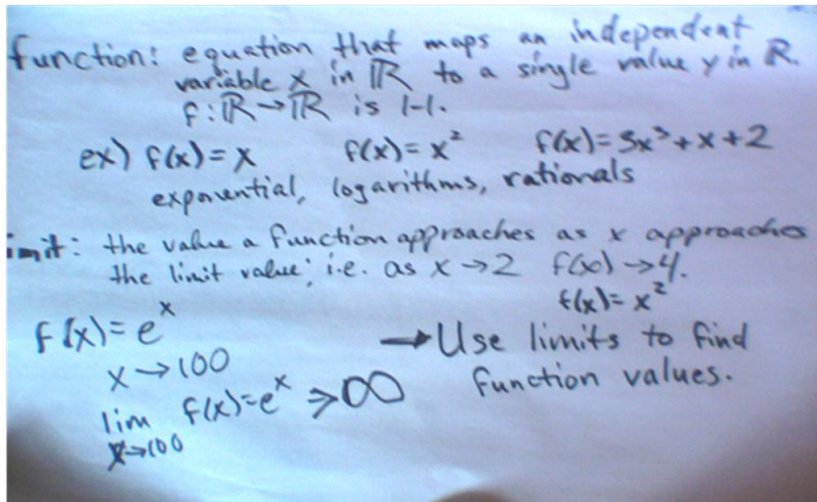 function: equation that maps an independent
variable x in ℝ to a single value y in ℝ.
f: ℝ → ℝ is 1-1.
ex) f(x) = x f(x) = x² f(x) = 3x³ + x + 2
exponential, logarithms, rationals
imit: the value a function approaches as x approaches
the limit value; i.e. as x → 2 f(x) → 4.
f(x) = x²
f(x) = eˣ
→ Use limits to find
x → 100
function values.
lim f(x) = eˣ → ∞
x → 100